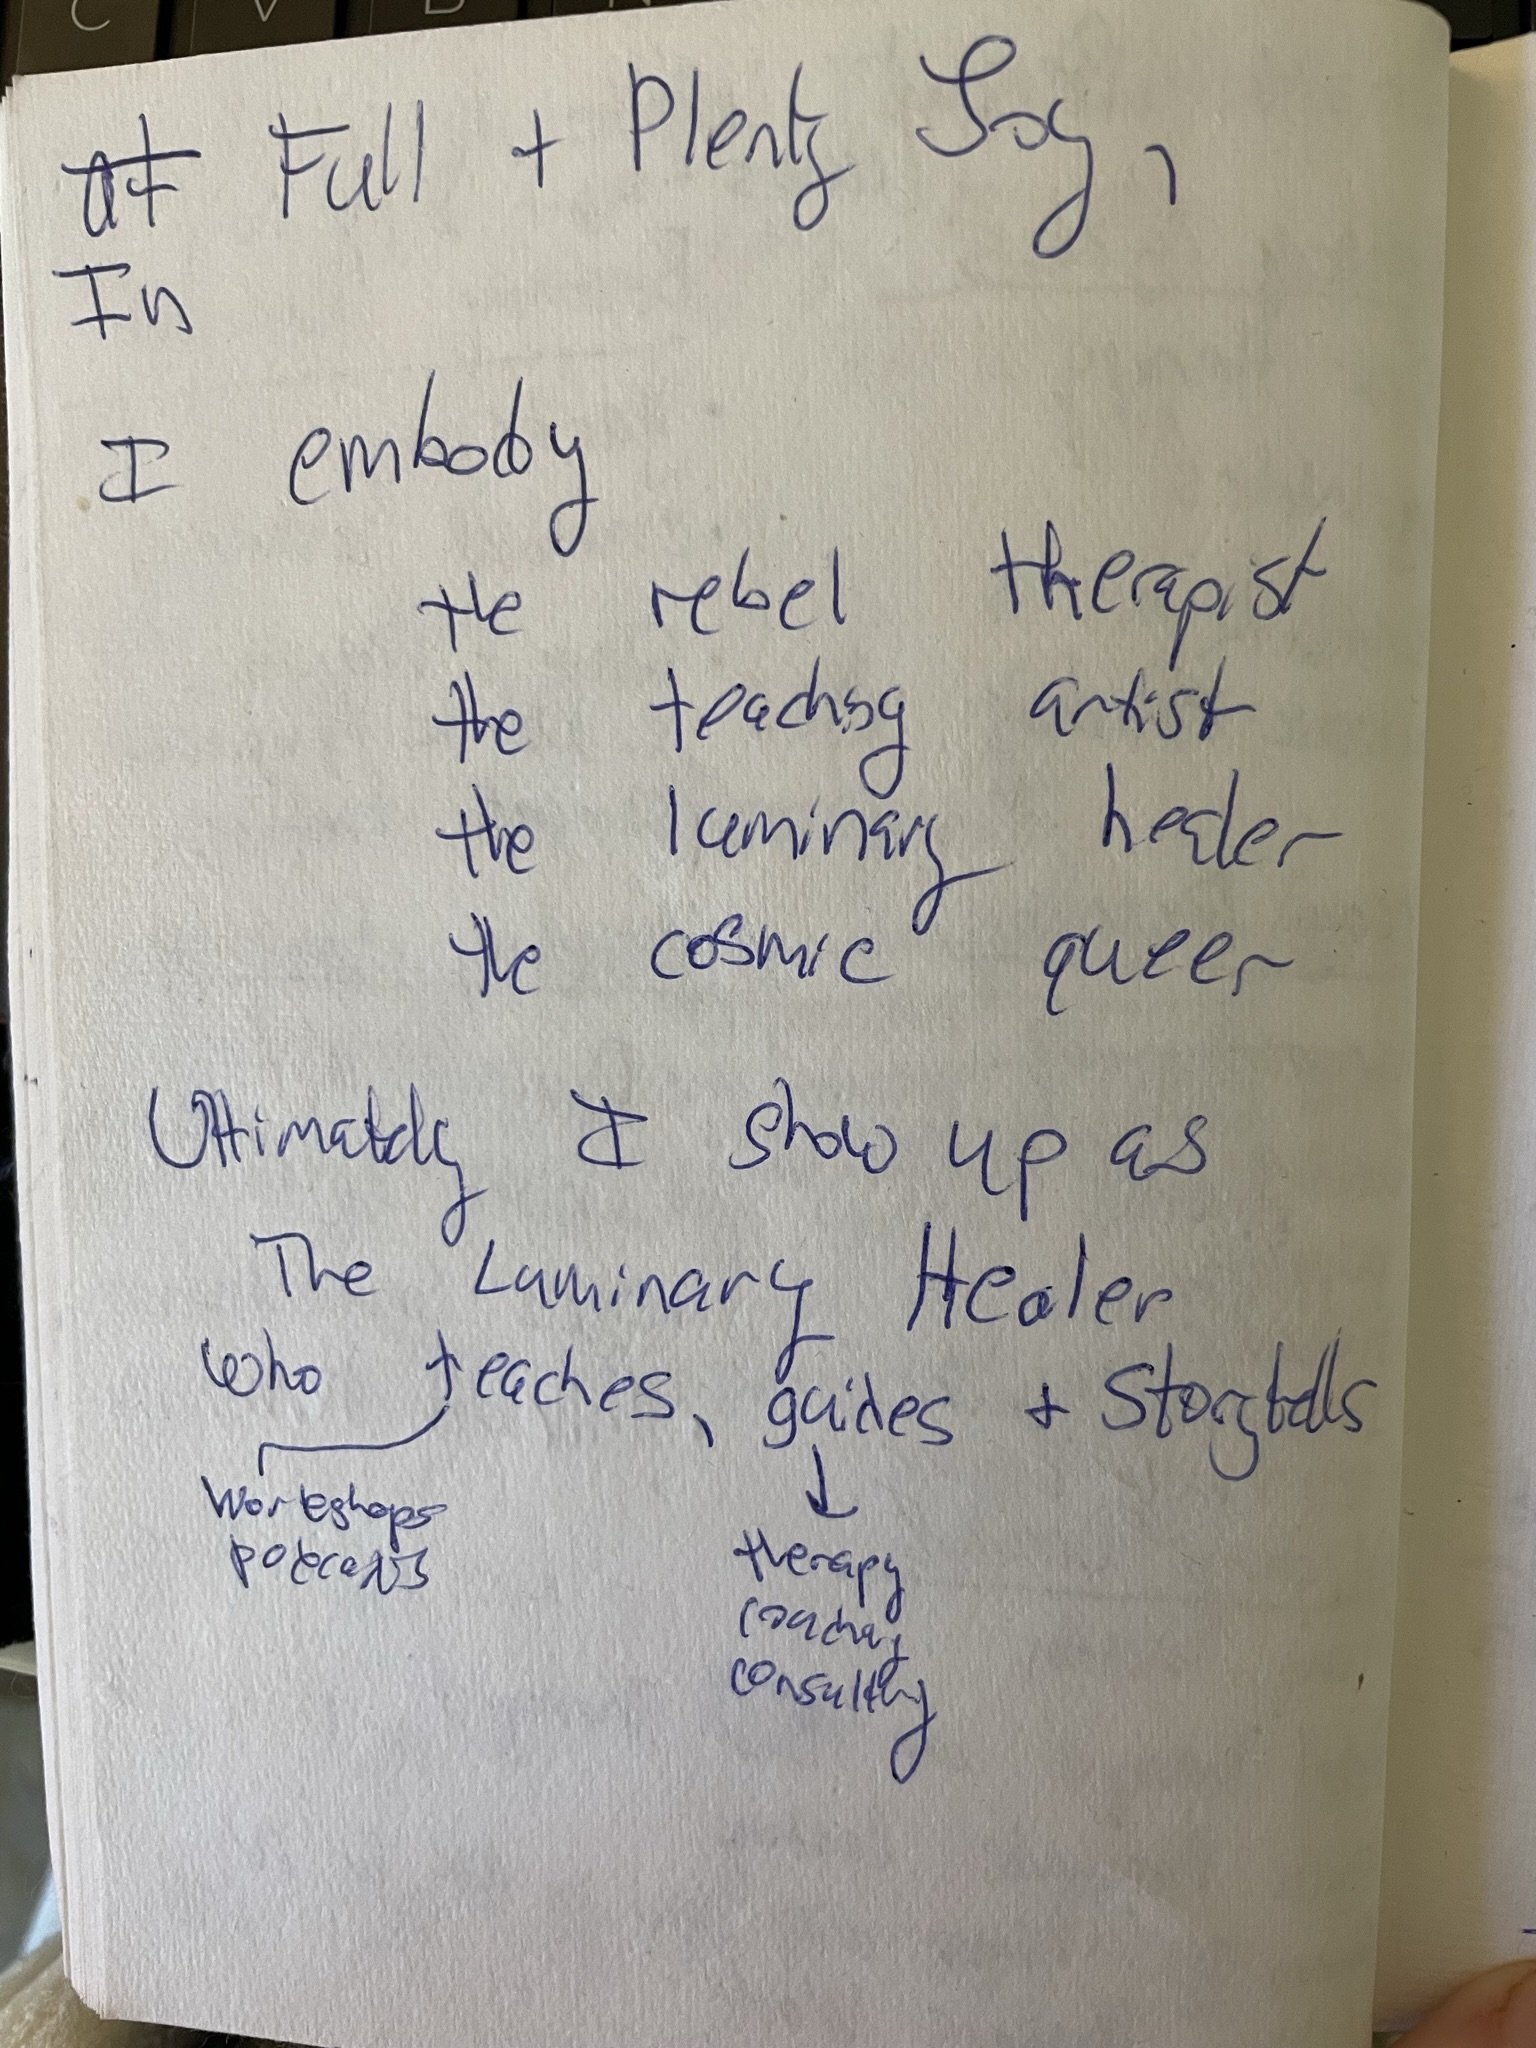 At Full + Plenty Joy,
In
I embody
the rebel therapist
the teaching artist
the luminary healer
the cosmic queer
Ultimately I show up as
The Luminary Healer
who teaches, guides + Storytells
Workshops
podcasts
therapy
coaching
consulting